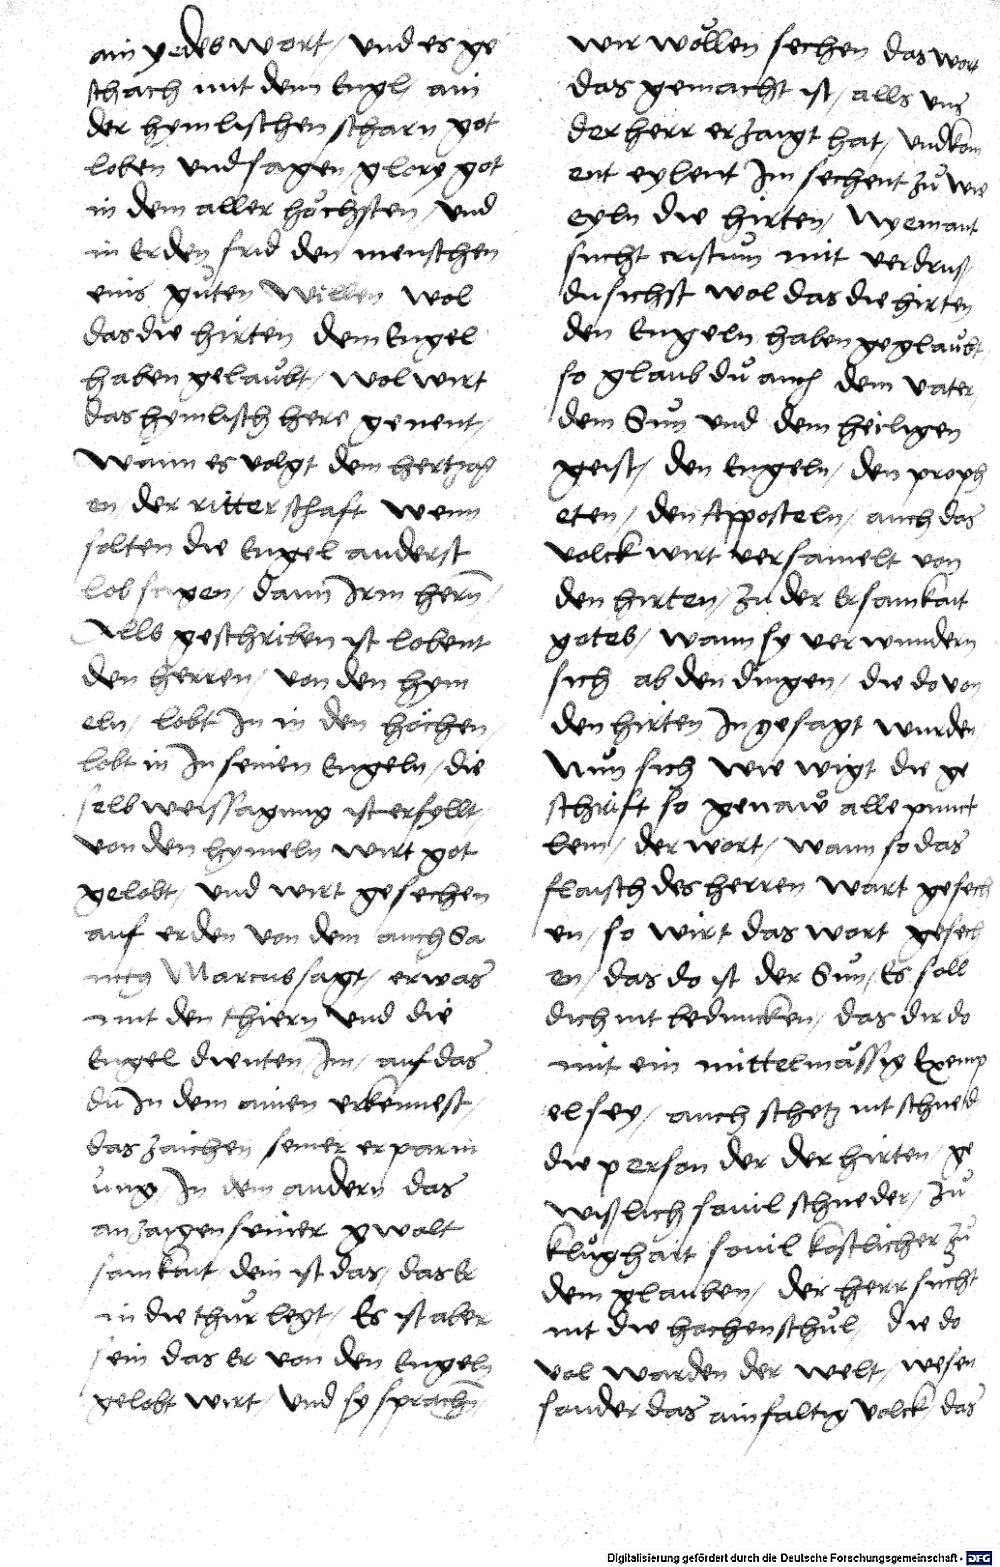 ain yedes wort / und es ge
schach mit dem Engl ain
der hymlischen scharn got
loben und sagen / glory got
in dem aller höchsten / und
in Erden frid den menschen
eins gůten willen wol
das die hirten dem Engel
haben gelaubt / wol wirt
das hymlisch here genent /
Wann es volgt dem hertzog
en / der ritterschaft wenn
solten die Engel anderst
lob sagen / dann Irm hern̄ /
Alls geschriben ist lobent
den herren / von den hym
eln / lobt In in den höchen /
lobt in In seinen Engeln / die
selb weissagung ist erfyllt /
von den hymeln wirt got
gelobt / und wirt gesechen
auf erden von dem auch Sa
nctus Marcus sagt / er was
mit den thiern und die
Engel dienten Im / auf das
du In dem ainen erkennest /
das zaichen seiner erparm
ung / In dem andern das
anzaigen seiner gwalt
samkait / dein ist das / das Er
in die thür legt / Es ist aber
sein das Er von den Engeln
gelobt wirt / und sy sprachen̄
wir wöllen sechen das wort
das gemacht ist / alls uns
der herr erzaigt hat / und kom
ent eylent Im sechent zů wie
eyln die hirten / Nyemant
sucht cristum mit verdruß /
du sichst wol das die hirten
den Engeln haben geglaubt
so glaub dů auch dem vater
dem Sun und dem heiligen
geist / den Engeln / den proph
eten / den Apposteln / auch das
volck wirt versamelt von
den hirten / zu der Ersamkait
gotes / wann sy verwundern
sich ab den dingen / die do von
den hirten In gesagt wurden
Nun sich wie wigt die ge
schrift so genaw alle punct
lein / der wort / wann so das
flaisch des herren wart gesech
en / so wirt das wort gesech
en / das do ist der Sun / Es soll
dich nit beduncken / das dir do
mit ein mittelmässig Exemp
el sey / auch schetz nit schned
die person der der hirten / ge
wißlich souil schneder / zů
klůghait souil kostlicher zů
dem glauben / der herr sucht
nit die hochenschůl / die do
vol warden der welt / wesen
sonder das ainfaltig volck / das
Digitalisierung gefördert durch die Deutsche Forschungsgemeinschaft - DFG